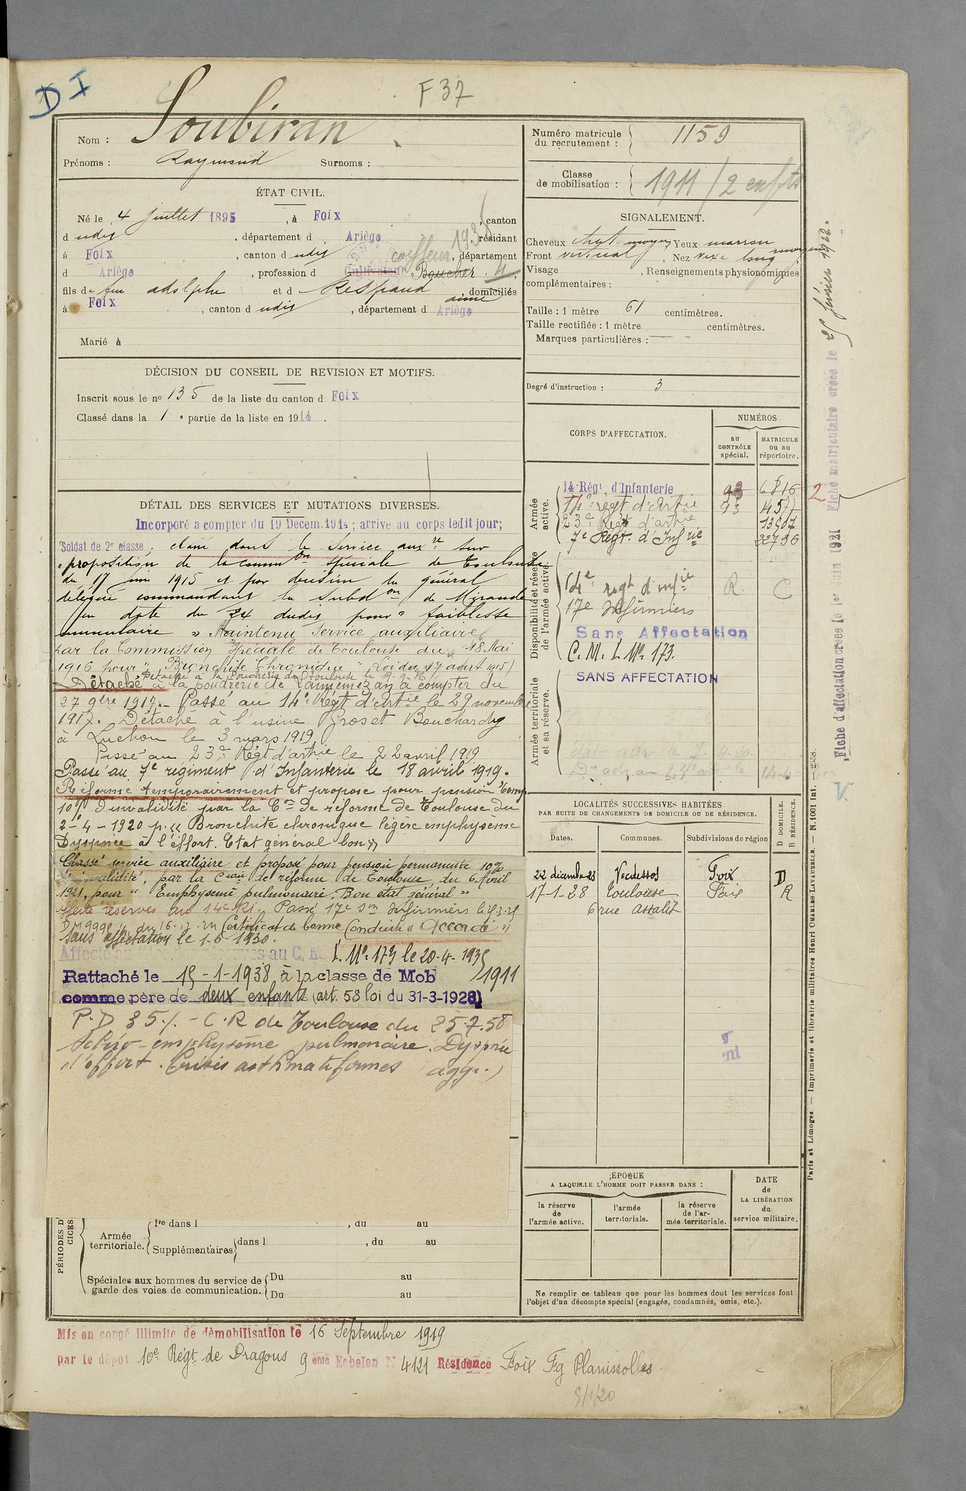 D I
F 37
Nom : Soubiran
Prénoms : Raymond Surnoms :
Numéro matricule du recrutement : 1159
Classe de mobilisation : 1911 / 2 enfts
ÉTAT CIVIL.
Né le 4 juillet 1895, à Foix, canton
d udis, département d Ariège, résidant
à Foix, canton d udis, département
d Ariège, profession d Cultivateur Boucher coiffeur
fils de feu adolphe et d Respaud anne, domiciliés
à Foix, canton d udis, département d Ariège
Marié à
1938
SIGNALEMENT.
Cheveux chat. moyen Yeux marron
Front vertical, Nez long moyen
Visage , Renseignements physionomiques
complémentaires :
Taille : 1 mètre 61 centimètres.
Taille rectifiée : 1 mètre centimètres.
Marques particulières :
Degré d'instruction : 3
DÉCISION DU CONSEIL DE REVISION ET MOTIFS.
Inscrit sous le n° 135 de la liste du canton d Foix
Classé dans la 1e partie de la liste en 1914.
DÉTAIL DES SERVICES ET MUTATIONS DIVERSES.
Incorporé à compter du 19 Décem. 1914 ; arrivé au corps ledit jour;
Soldat de 2e classe, classé dans le Service auxre sur
proposition de la common spéciale de Toulouse
du 17 juin 1915 et par décision du général
délégué commandant la Subdon de Mirande
en date du 24 dudit pour "faiblesse
musculaire" Maintenu Service auxiliaire
par la Commission Spéciale de Toulouse du 18 Mai
1916 pour "Bronchite Chronique" (loi du 17 août 1915)
Détaché à la Poudrerie de Toulouse le
Détaché à la poudrerie de Lannemezan à compter du
27 9bre 1917. Passé au 14e Régt d'Artie le 29 novembre
1917. Détaché à l'usine Gros et Bouchardy
à Luchon le 3 mars 1919
Passé au 23e Régt d'artie le 22 avril 1919
Passé au 7e régiment d'Infanterie le 18 avril 1919.
Réformé temporairement et proposé pour pension temp.
10% d'invalidité par la Con de réforme de Toulouse du
2-4-1920 p. "Bronchite chronique légère emphysème
Dyspnée à l'effort. Etat général bon"
Classé service auxiliaire et proposé pour pension permanente 10%
d'invalidité, par la Cion de réforme de Toulouse, du 6 Avril
1921, pour "Emphysème pulmonaire. Bon état général"
Affecté réserves au 14e RI. Passé 17e Son Infirmiers le
Certificat de bonne Conduite "Accordé"
Sans affectation le 1-6-1930.
Affecté au C. M. I. No 173 le 20-4-1935
Rattaché le 15-1-1938 à la classe de Mob 1911
comme père de deux enfants (art. 58 loi du 31-3-1928)
P.D 35% - C.R de Toulouse du 25.7.58
Scléro-emphysème pulmonaire. Dyspnée
d'effort. Crises asthmatiformes (agg.)
CORPS D'AFFECTATION.
NUMÉROS
au CONTRÔLE spécial.
MATRICULE ou au répertoire.
Armée active.
14 Régt d'Infanterie 93 6816
14e régt d'Artie 93 4577
23e Régt d'artie 13907
7e Régt d'Infie 22796
Disponibilité et réserve de l'armée active.
14e regt d'infie R C
17e Infirmiers
Sans Affectation
C. M. I. No 173.
Armée territoriale et sa réserve.
SANS AFFECTATION
LOCALITÉS SUCCESSIVES HABITÉES
PAR SUITE DE CHANGEMENTS DE DOMICILE OU DE RÉSIDENCE.
Dates. Communes. Subdivisions de région
D DOMICILE. R RÉSIDENCE.
22 décembre 23 Vicdessos Foix D
17-1-28 Toulouse Foix R
6 rue Assalit
ÉPOQUE
A LAQUELLE L'HOMME DOIT PASSER DANS :
la réserve de l'armée active.
l'armée territoriale.
la réserve de l'armée territoriale.
DATE de LA LIBÉRATION du service militaire.
Ne remplir ce tableau que pour les hommes dont les services font
l'objet d'un décompte spécial (engagés, condamnés, omis, etc.).
PÉRIODES D'
Armée territoriale. 1re dans l , du au
Supplémentaires dans l , du au
Spéciales aux hommes du service de garde des voies de communication. Du au
Du au
Mis en congé illimité de démobilisation le 16 Septembre 1919
par le dépôt 10e Régt de Dragons 9ème Echelon N 4121 Résidence Foix Fg Planissolles.
5/1/20
Fiche d'affectation créée le 1er Juin 1921
Fiche matriculaire créée le 25 février 1922.
2
V
Paris et Limoges. — Imprimerie et librairie militaires Henri CHARLES-LAVAUZELLE. — N. 1001 int.